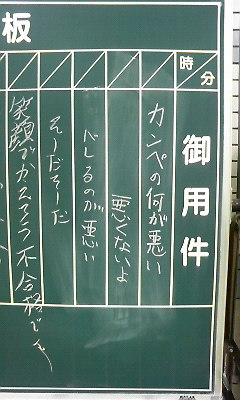 板
時分
御用件
カンペの何が悪い
悪くないよ
べしるのが悪い
そーだそーだ
笑顔でかえてフ不合格でも